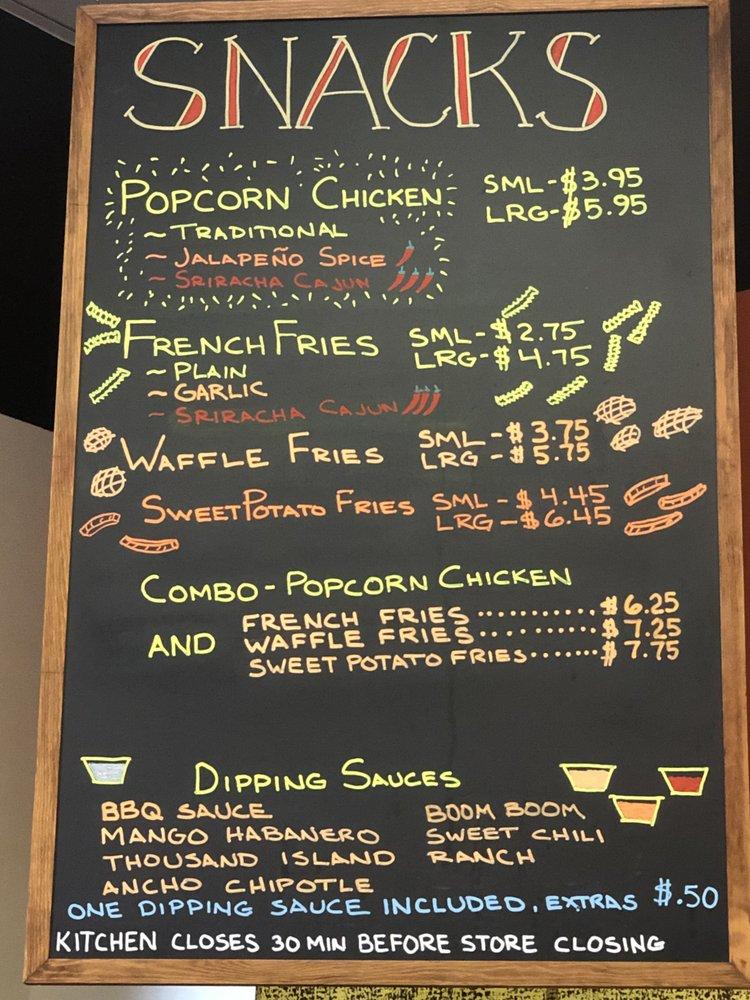 SNACKS
POPCORN CHICKEN SML-$3.95
LRG-$5.95
~ TRADITIONAL
~ JALAPEÑO SPICE
~ SRIRACHA CAJUN
FRENCH FRIES SML-$2.75
LRG-$4.75
~ PLAIN
~ GARLIC
~ SRIRACHA CAJUN
WAFFLE FRIES SML-$3.75
LRG-$5.75
SWEET POTATO FRIES SML-$4.45
LRG-$6.45
COMBO-POPCORN CHICKEN
AND
FRENCH FRIES...........$6.25
WAFFLE FRIES...........$7.25
SWEET POTATO FRIES.......$7.75
DIPPING SAUCES
BBQ SAUCE BOOM BOOM
MANGO HABANERO SWEET CHILI
THOUSAND ISLAND RANCH
ANCHO CHIPOTLE
ONE DIPPING SAUCE INCLUDED, EXTRAS $.50
KITCHEN CLOSES 30 MIN BEFORE STORE CLOSING